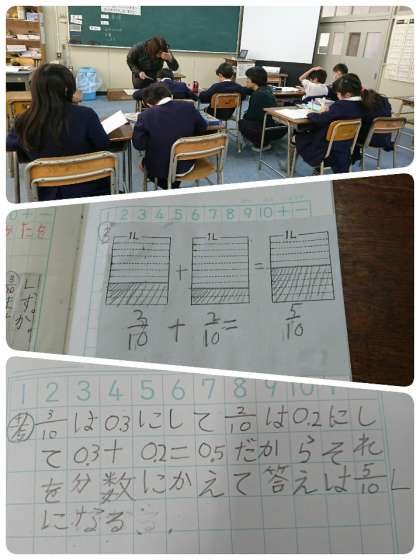 1 2 3 4 5 6 7 8 9 10 + -
1L 1L 1L
+ =
3/10 + 2/10 = 5/10
1 2 3 4 5 6 7 8 9 10
考 3/10 は 0.3 にして 2/10 は 0.2 にし
て 0.3 + 0.2 = 0.5 だからそれ
を分数にかえて答えは 5/10 L
になる